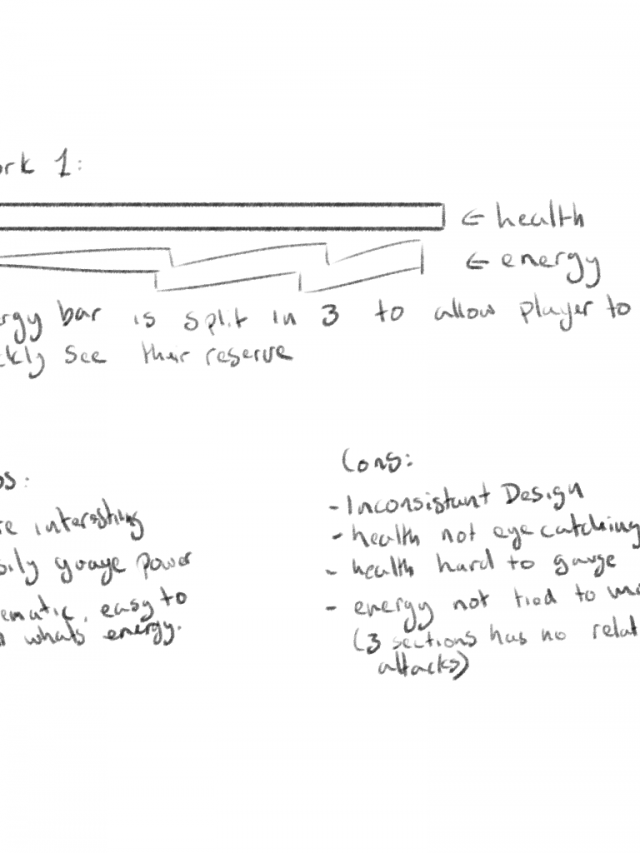 ork 1:
← health
← energy
rgy bar is split in 3 to allow player to
kly see their reserve
os:
e interesting
sily guage power
ematic, easy to
whats energy.
Cons:
- Inconsistant Design
- health not eye catching
- health hard to gauge
- energy not tied to mo
(3 sections has no relat
attacks)